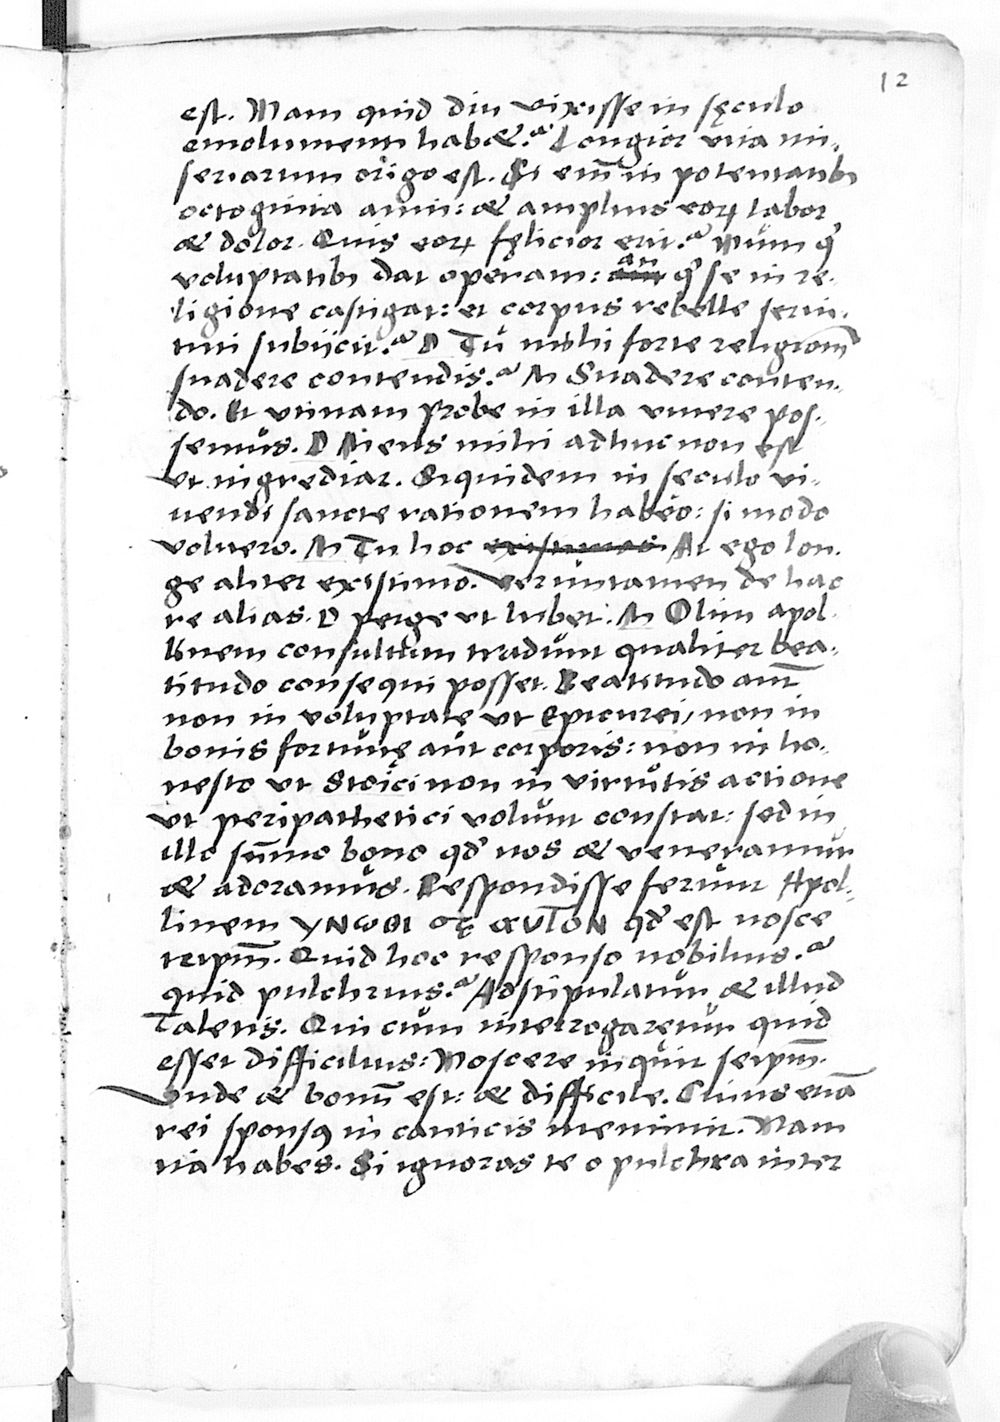 12
est. Nam quid diu vixisse in sęculo
emolumenti habet? Longior vita mi-
seriarum origo est. Si em̄ in potentatibꝰ
octoginta anni: et amplius eoꝝ labor
et dolor. Quis eoꝝ fęlicior erit? Num q̉
voluptatibꝰ dat operam: an q̉ se in re-
ligione castigat: et corpus rebelle servi-
tuti subijcit? D Tu mihi forte religionē
suadere contendis? M Suadere conten-
do. Et utinam probe in illa vivere pos-
semus. D Mens mihi adhuc non est
ut ingrediar. Siquidem in seculo vi-
vendi sancte rationem habeo: si modo
voluero. M Tu hoc existimas At ego lon-
ge aliter existimo. Veruntamen de hac
re alias. D perge ut lubet. M Olim apol-
linem consultum tradunt qualiter bea-
titudo consequi posset. Beatitudo aūt
non in voluptate ut Epicurei, non in
bonis fortunę aut corporis: non in ho-
nesto ut Stoici non in virtutis actione
ut peripathetici volunt constat: sed in
illo sūmo bono qd̉ nos et veneramur
et adoramus. Respondisse ferunt Apol-
linem γνωθι σε αυτον qd̉ est nosce
teipm̄. Quid hoc responso nobilius?
quid pulchrius? Adstipulatur et illud
Taletis. Qui cum interrogaretur quid
esset difficilius: Noscere inquit seipm̄.
Vnde et bonū est: et difficile. Cuius etiā
rei sponsꝰ in canticis meminit. Nam
ita habes. Si ignoras te o pulchra inter